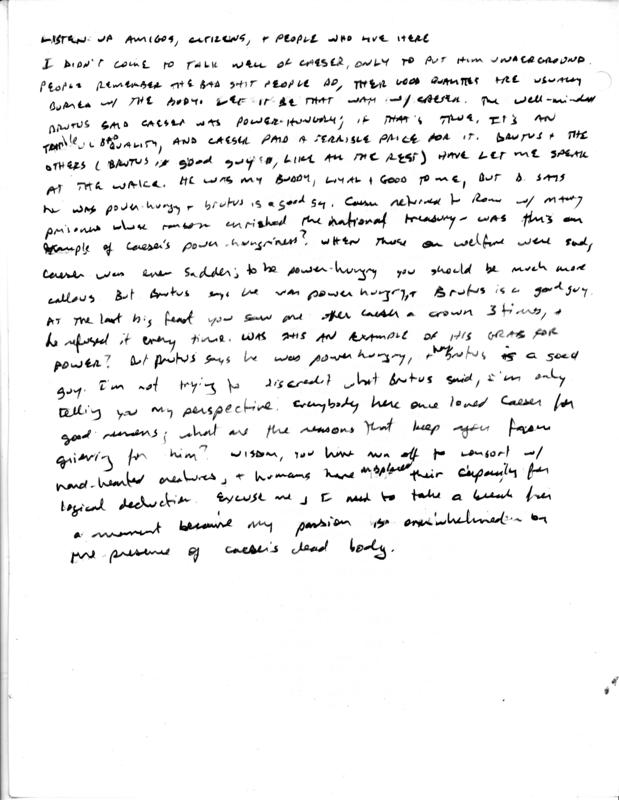 LISTEN UP AMIGOS, CITIZENS, + PEOPLE WHO LIVE HERE
I DIDN'T COME TO TALK WELL OF CAESER, ONLY TO PUT HIM UNDERGROUND.
PEOPLE REMEMBER THE BAD SHIT PEOPLE DO, THEIR GOOD QUALITIES ARE USUALLY
BURIED W/ THE BODY. LET IT BE THAT WAY W/ CAESER. The well-minded
BRUTUS SAID CAESER WAS POWER-HUNGRY; IF THAT'S TRUE, IT'S AN
BAD QUALITY, AND CAESER PAID A TERRIBLE PRICE FOR IT. BRUTUS + THE
OTHERS (BRUTUS is a good guy too, LIKE ALL THE REST) HAVE LET ME SPEAK
AT THE WAKE. HE WAS MY BUDDY, LOYAL + GOOD TO ME, BUT B. SAYS
he was power-hungry + brutus is a good guy. Caeser returned to Rome w/ many
prisoners whose ransom enriched the national treasury - was this an
example of Caeser's power-hungriness? WHEN those on welfare were sad,
Caeser was even sadder; to be power-hungry you should be much more
callous. But Brutus says he was power hungry, + Brutus is a good guy.
AT the last big feast you saw me offer Caeser a crown 3 times, +
he refused it every time. WAS THIS AN EXAMPLE OF HIS GRAB FOR
POWER? But Brutus says he was power hungry, + hey Brutus is a good
guy. I'm not trying to discredit what Brutus said, I'm only
telling you my perspective. Everybody here once loved Caeser for
good reasons; what are the reasons that keep you from
grieving for him? Wisdom, you have run off to consort w/
hard-hearted creatures, + humans have misplaced their capacity for
logical deduction. Excuse me, I need to take a break for
a moment because my passion is overwhelmed by
the presence of Caeser's dead body.